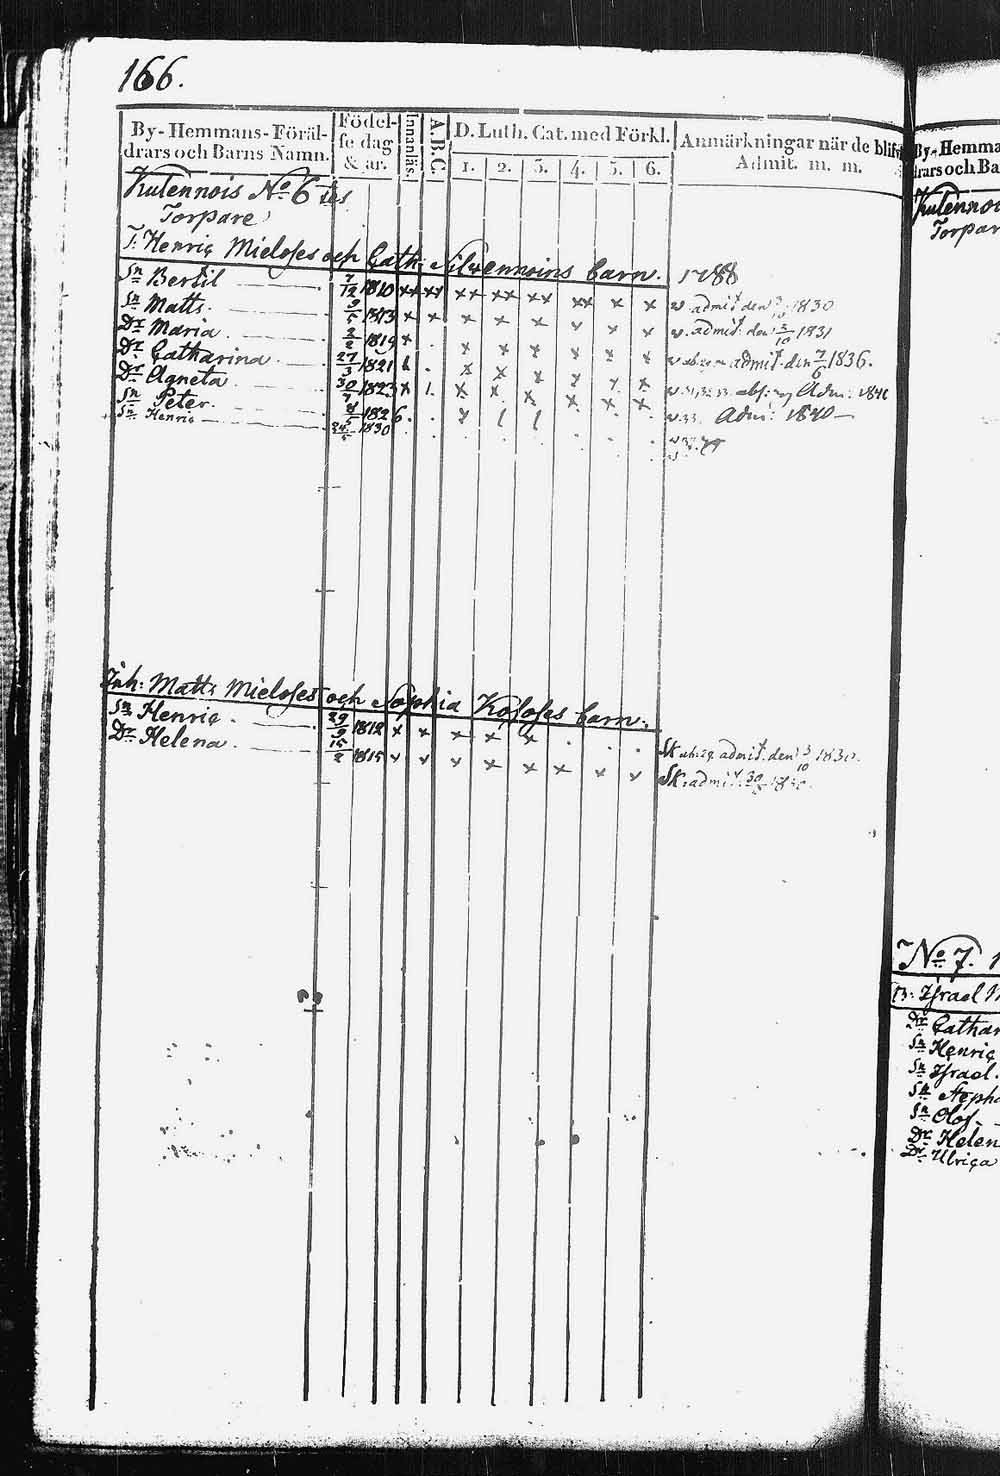 166.
By-Hemmans-Föräl-
drars och Barns Namn.
Födel-
se dag
& år.
Innanläs.
A.B.C.
D. Luth. Cat. med Förkl.
1. 2. 3. 4. 5. 6.
Anmärkningar när de blifvit
Admit. m. m.
Kutennois No 6
Torpare
T: Henric Mieloses och Cath: barn. 1788
Sn Bertil 7/12 1810 x x x x x x x x x x x x x x admit den 1830
Sn Matts 9/5 1813 x x x x x x x x admit: den 3/10 1831
Dr Maria 2/2 1819 x x x x x x x admit. den 7/6 1836.
Dr Catharina 27/3 1821 x x x x x x Adm: 1840
Dr Agneta 30/7 1823 x x x x x x x Adm: 1840
Sn Peter 1826
Sn Henric 24/5 1830
Inh: Matts Mieloses och Sophia Kososes barn.
Sn Henric 29/9 1812 x x x x x admit. den 3/10 1830.
Dr Helena 15/2 1815 x x x x x x x x Sk: admit:
By-Hemma
drars och Ba
Kutennoi
Torpar
No 7.
B: Israel
Dr Cathar
Sn Henric
Sn Israel.
Sn Steph
Sn Olof
Dr Helen
Dr Ulrica